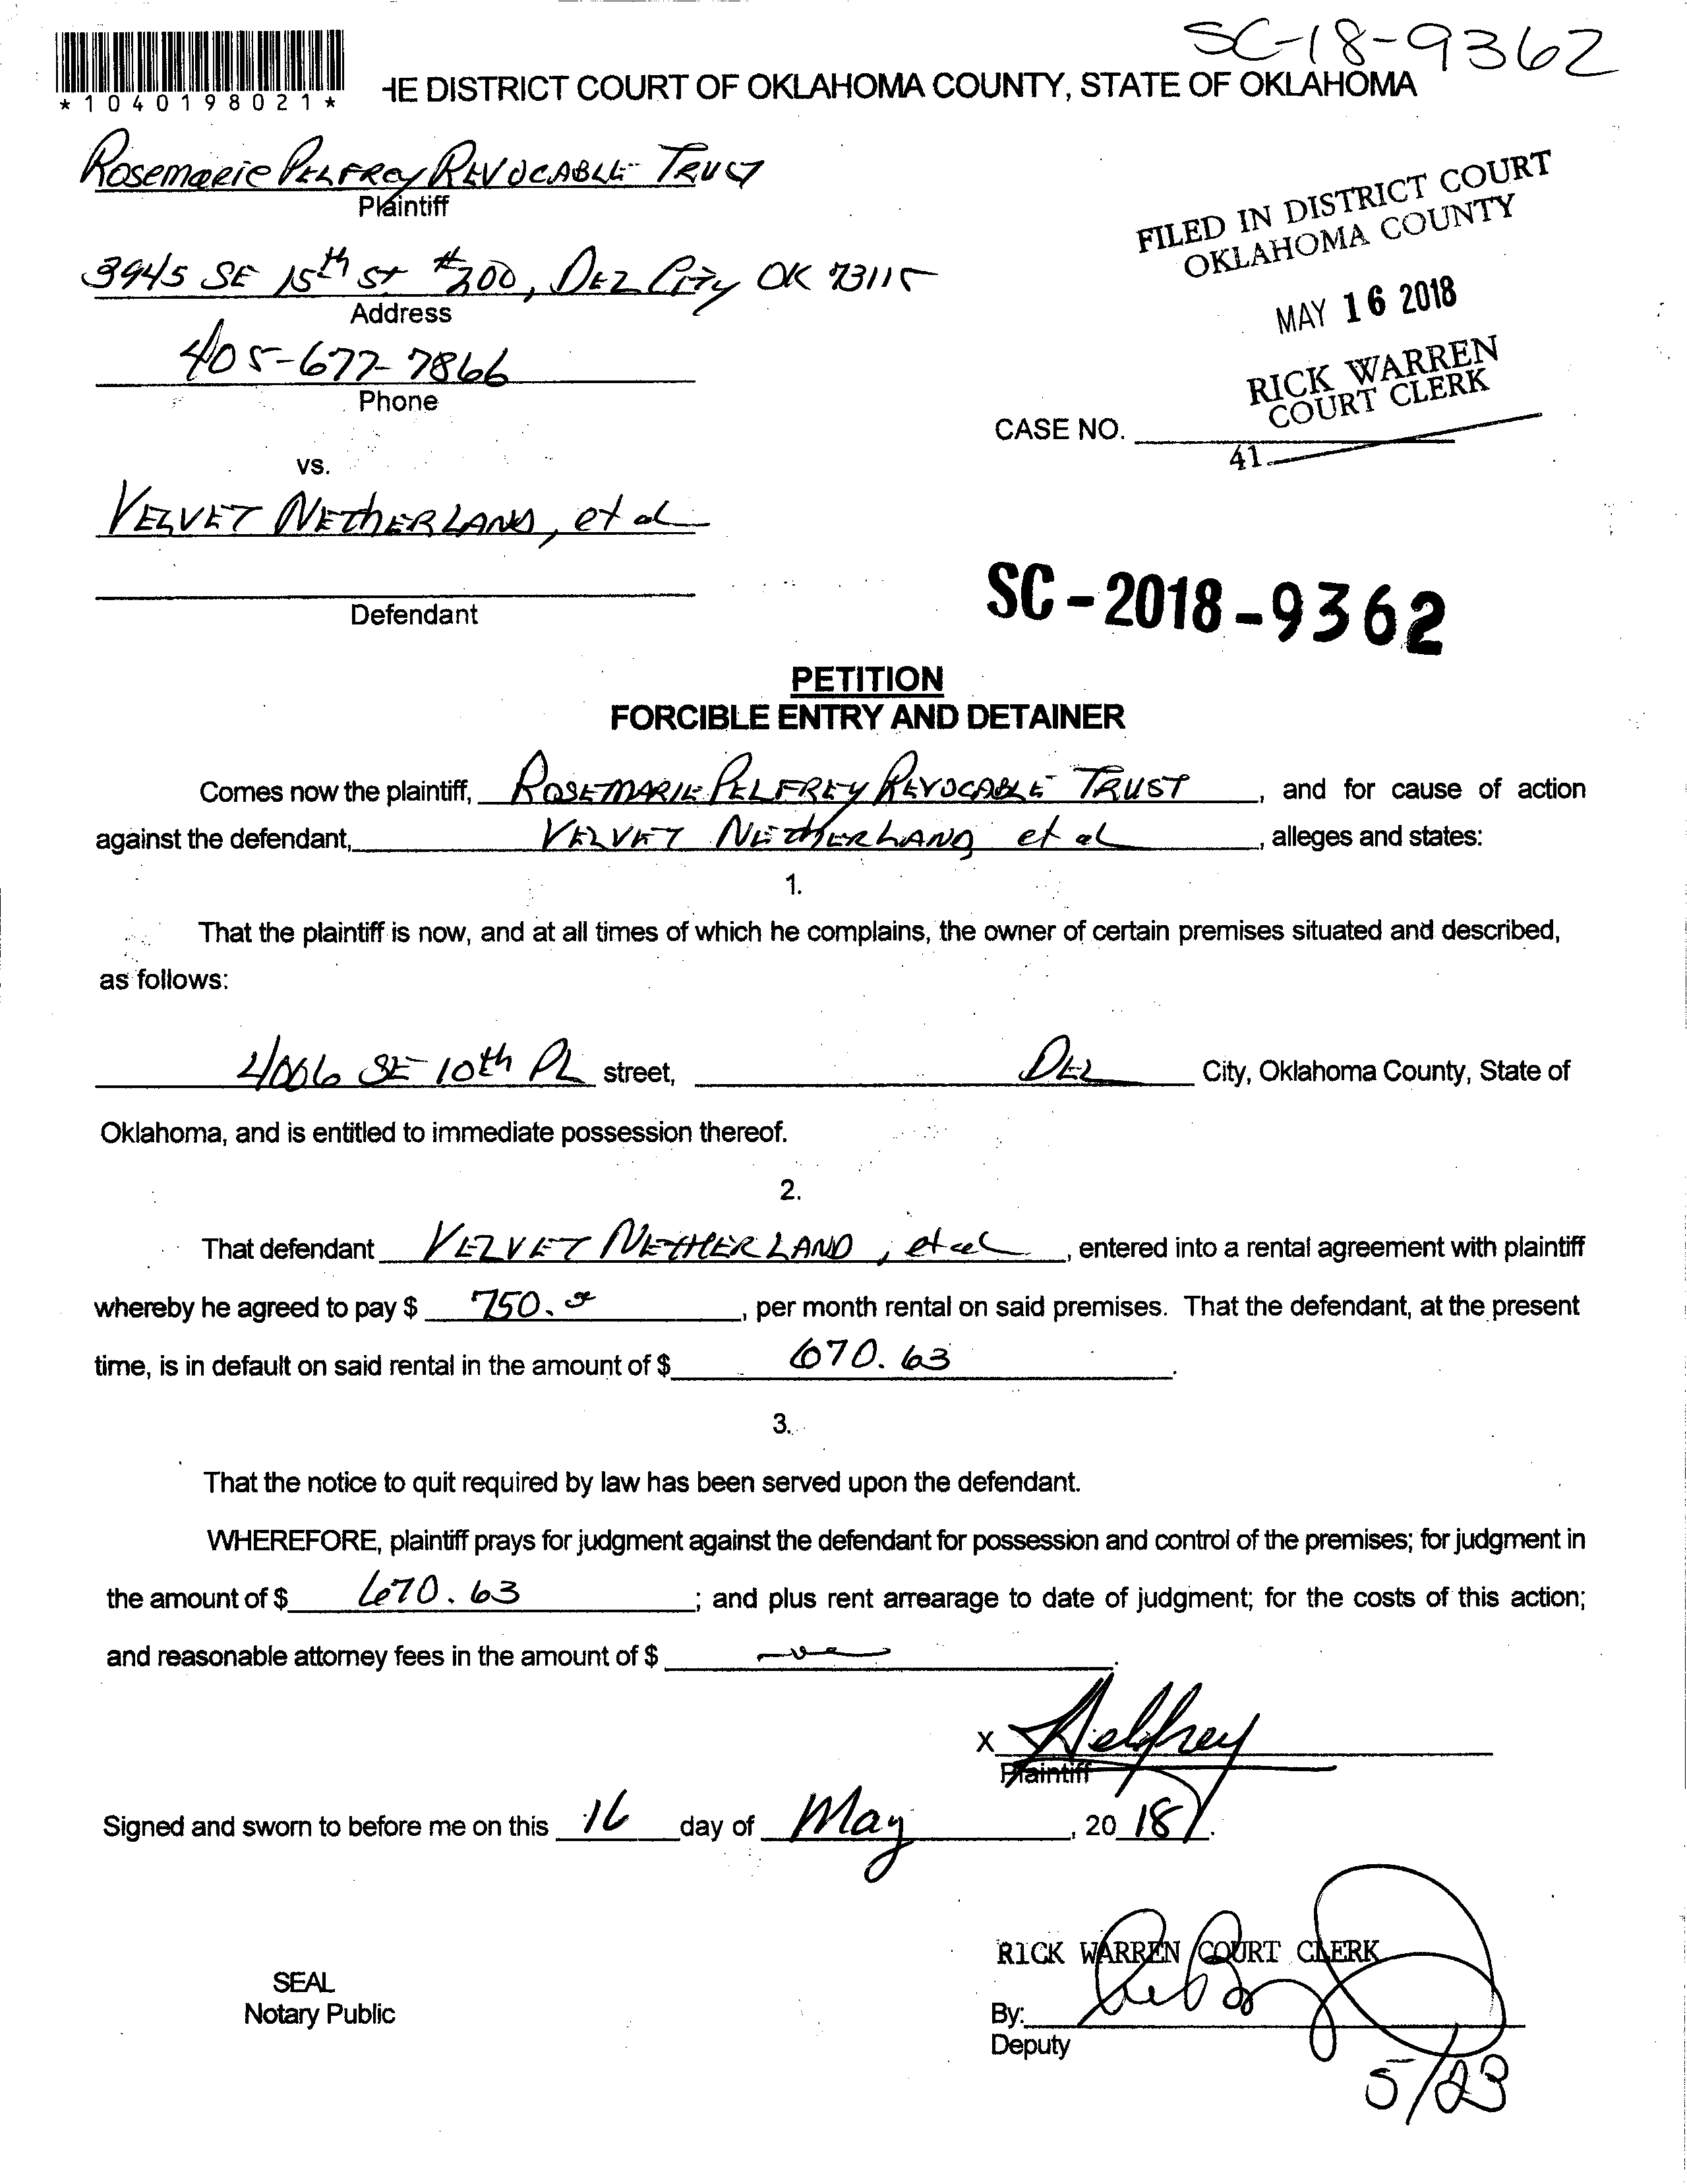 SC-18-9362
*1040198021*
HE DISTRICT COURT OF OKLAHOMA COUNTY, STATE OF OKLAHOMA
Rosemarie Pelfrey Revocable Trust
Plaintiff
3945 SE 15th St #200, Del City OK 73115
Address
405-677-7866
Phone
FILED IN DISTRICT COURT
OKLAHOMA COUNTY
MAY 16 2018
RICK WARREN
COURT CLERK
CASE NO.
41
vs.
VELVET NETHERLAND, et al
Defendant
SC-2018-9362
PETITION
FORCIBLE ENTRY AND DETAINER
Comes now the plaintiff, ROSEMARIE PELFREY REVOCABLE TRUST, and for cause of action
against the defendant, VELVET NETHERLAND et al, alleges and states:
1.
That the plaintiff is now, and at all times of which he complains, the owner of certain premises situated and described,
as follows:
4006 SE 10th PL street, DEL City, Oklahoma County, State of
Oklahoma, and is entitled to immediate possession thereof.
2.
That defendant VELVET NETHERLAND, et al, entered into a rental agreement with plaintiff
whereby he agreed to pay $ 750. , per month rental on said premises. That the defendant, at the present
time, is in default on said rental in the amount of $ 670.63.
3.
That the notice to quit required by law has been served upon the defendant.
WHEREFORE, plaintiff prays for judgment against the defendant for possession and control of the premises; for judgment in
the amount of $ 670.63; and plus rent arrearage to date of judgment; for the costs of this action;
and reasonable attorney fees in the amount of $ .
X Pelfrey
Plaintiff
Signed and sworn to before me on this 16 day of May, 20 18.
RICK WARREN COURT CLERK
SEAL
Notary Public
By:
Deputy
5/23